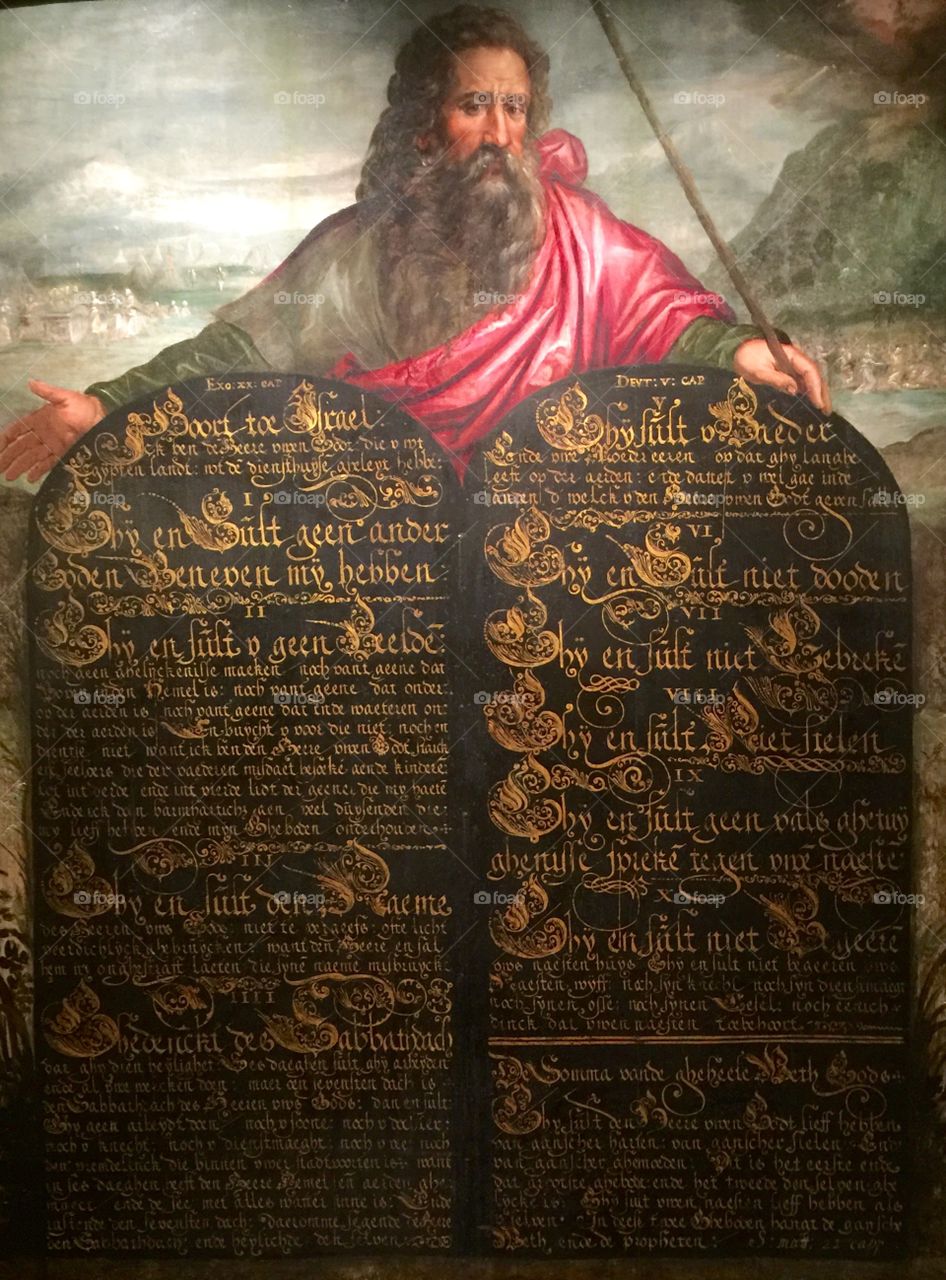 EXO: XX: CAP
Hoort toe Israel:
Ick ben de Heere uwen Godt, die u wt
Egypten landt: wt de diensthuyse geleyt hebbe:
I
Ghÿ en Sult geen ander
Goden Beneven mÿ hebben
II
Ghÿ en sult v geen Beelde
noch geen ghelyckenisse maeken noch vant geene dat
Boven Hemel is: noch vant geene dat onder
op der aerden is noch vant geene dat ende waeteren on:
der der aerden is: En buycht v voor die niet noch en
dientse niet want ick ben den Heere uwen Godt
die der vaederen misdaet aende kinderē
my lieff hebben ende myn Gheboden onderhouden
III
Ghÿ en sult den Naeme
des Heeren uws Gods niet te
want den Heere en sal
hem niet ongestraft laeten die syne naeme misbruyck
IIII
Ghedenckt des Sabbathdach
dat ghy dien heylighet: Ses daeghen sult ghy arbeyden
ende al uwe wercken doen: maer den sevensten dach is
den Sabbathdach des Heeren uws Gods: dan en sult
Ghy geen arbeydt doen noch v soone: noch v dochter:
noch v knecht: noch v dienstmaeght: noch v
die binnen uwer stadt is: want
in ses daeghen heeft den Heere Hemel en aerden
ende de see met alles watter inne is: Ende
den sevensten dach: daeromme segende de Heere
den Sabbathdach: ende heylichde den selven
DEVT: V: CAP
V
Ghÿ sult v Vaeder
Ende uwe Moeder eeren op dat ghy langhe
leeft op der aerden: ende dattet v wel gae inde
landen d welck v den Heere uwen Godt geven sal
VI
Ghÿ en Sult niet dooden
VII
Ghÿ en sult niet Eebrekē
VIII
Ghÿ en sult Niet stelen
IX
Ghÿ en sult geen vals ghetuÿ
ghenisse sprekē tegen uwē naestē
X
Ghÿ en sult niet Begeerē
uws naesten huys Ghy en sult niet begeeren uws
Naesten wyff: noch syn knecht noch syn dienstmaegt
noch synen osse: noch synen Eesel: noch eenich
dinck dat uwen naesten toebehoort
De Somma vande gheheele Weth Gods
Ghy sult den Heere uwen Godt lieff hebben
van ganscher harten: van gansche sielen: Ende
van gansche ghemoeden: Dit is het eerste ende
dat grootste ghebodt ende het tweede den selven ghe
lycke is: Ghy sult uwen naesten lieff hebben als
v selven: In deese twee Gheboden hangt de gansche
Weth ende de propheten: S: mat: 22 cap: